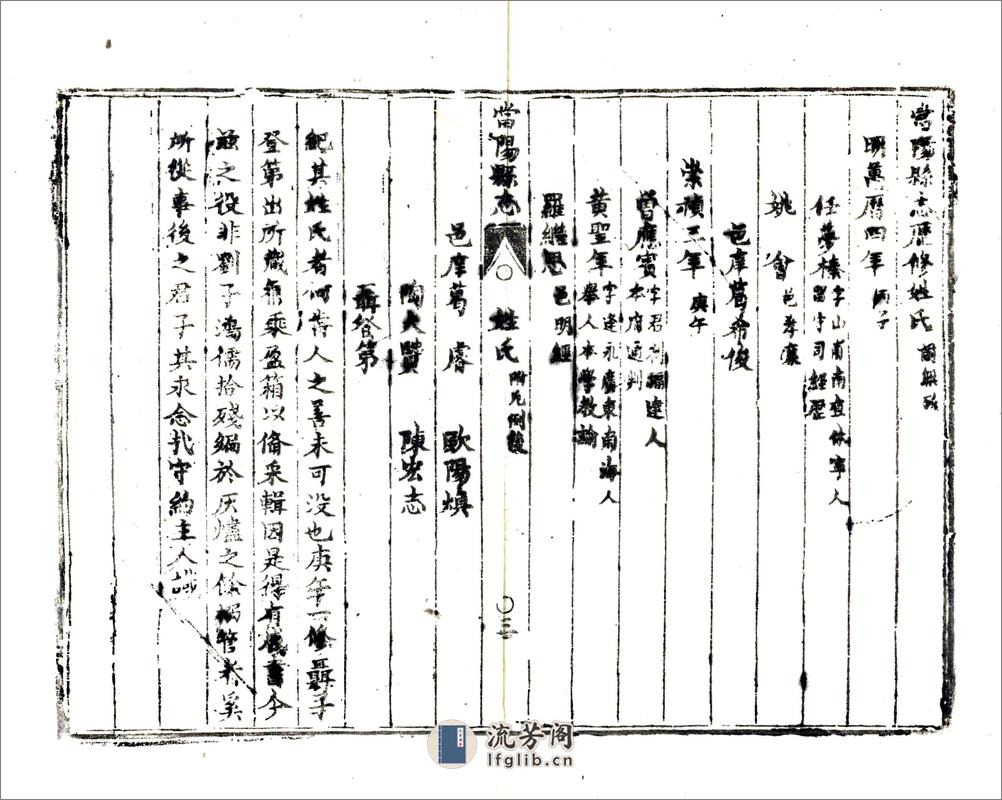 當陽縣志歷修姓氏
明萬曆四年 丙子
任夢榛 字山甫南直休寧人 留守司經歷
姚會 邑孝廉
邑庠葛希俊
崇禎三年 庚午
曾應賓 字君 福建人 本府通判
黃聖年 字逢永廣東南海人 舉人本學教諭
羅繼思 邑明經
當陽縣志 姓氏 附凡例後 三
邑庠葛 睿 歐陽煥
陶大贊 陳宏志
聶登第
紀其姓氏者何昔人之善未可没也庚午一修聶子
登第出所藏舊乘盈箱以俻采輯因是得有成書今
兹之役非劉子鴻儒拾殘編於灰燼之餘搦管未奚
所從事後之君子其永念扎守約主人識
流芳阁
lfglib.cn